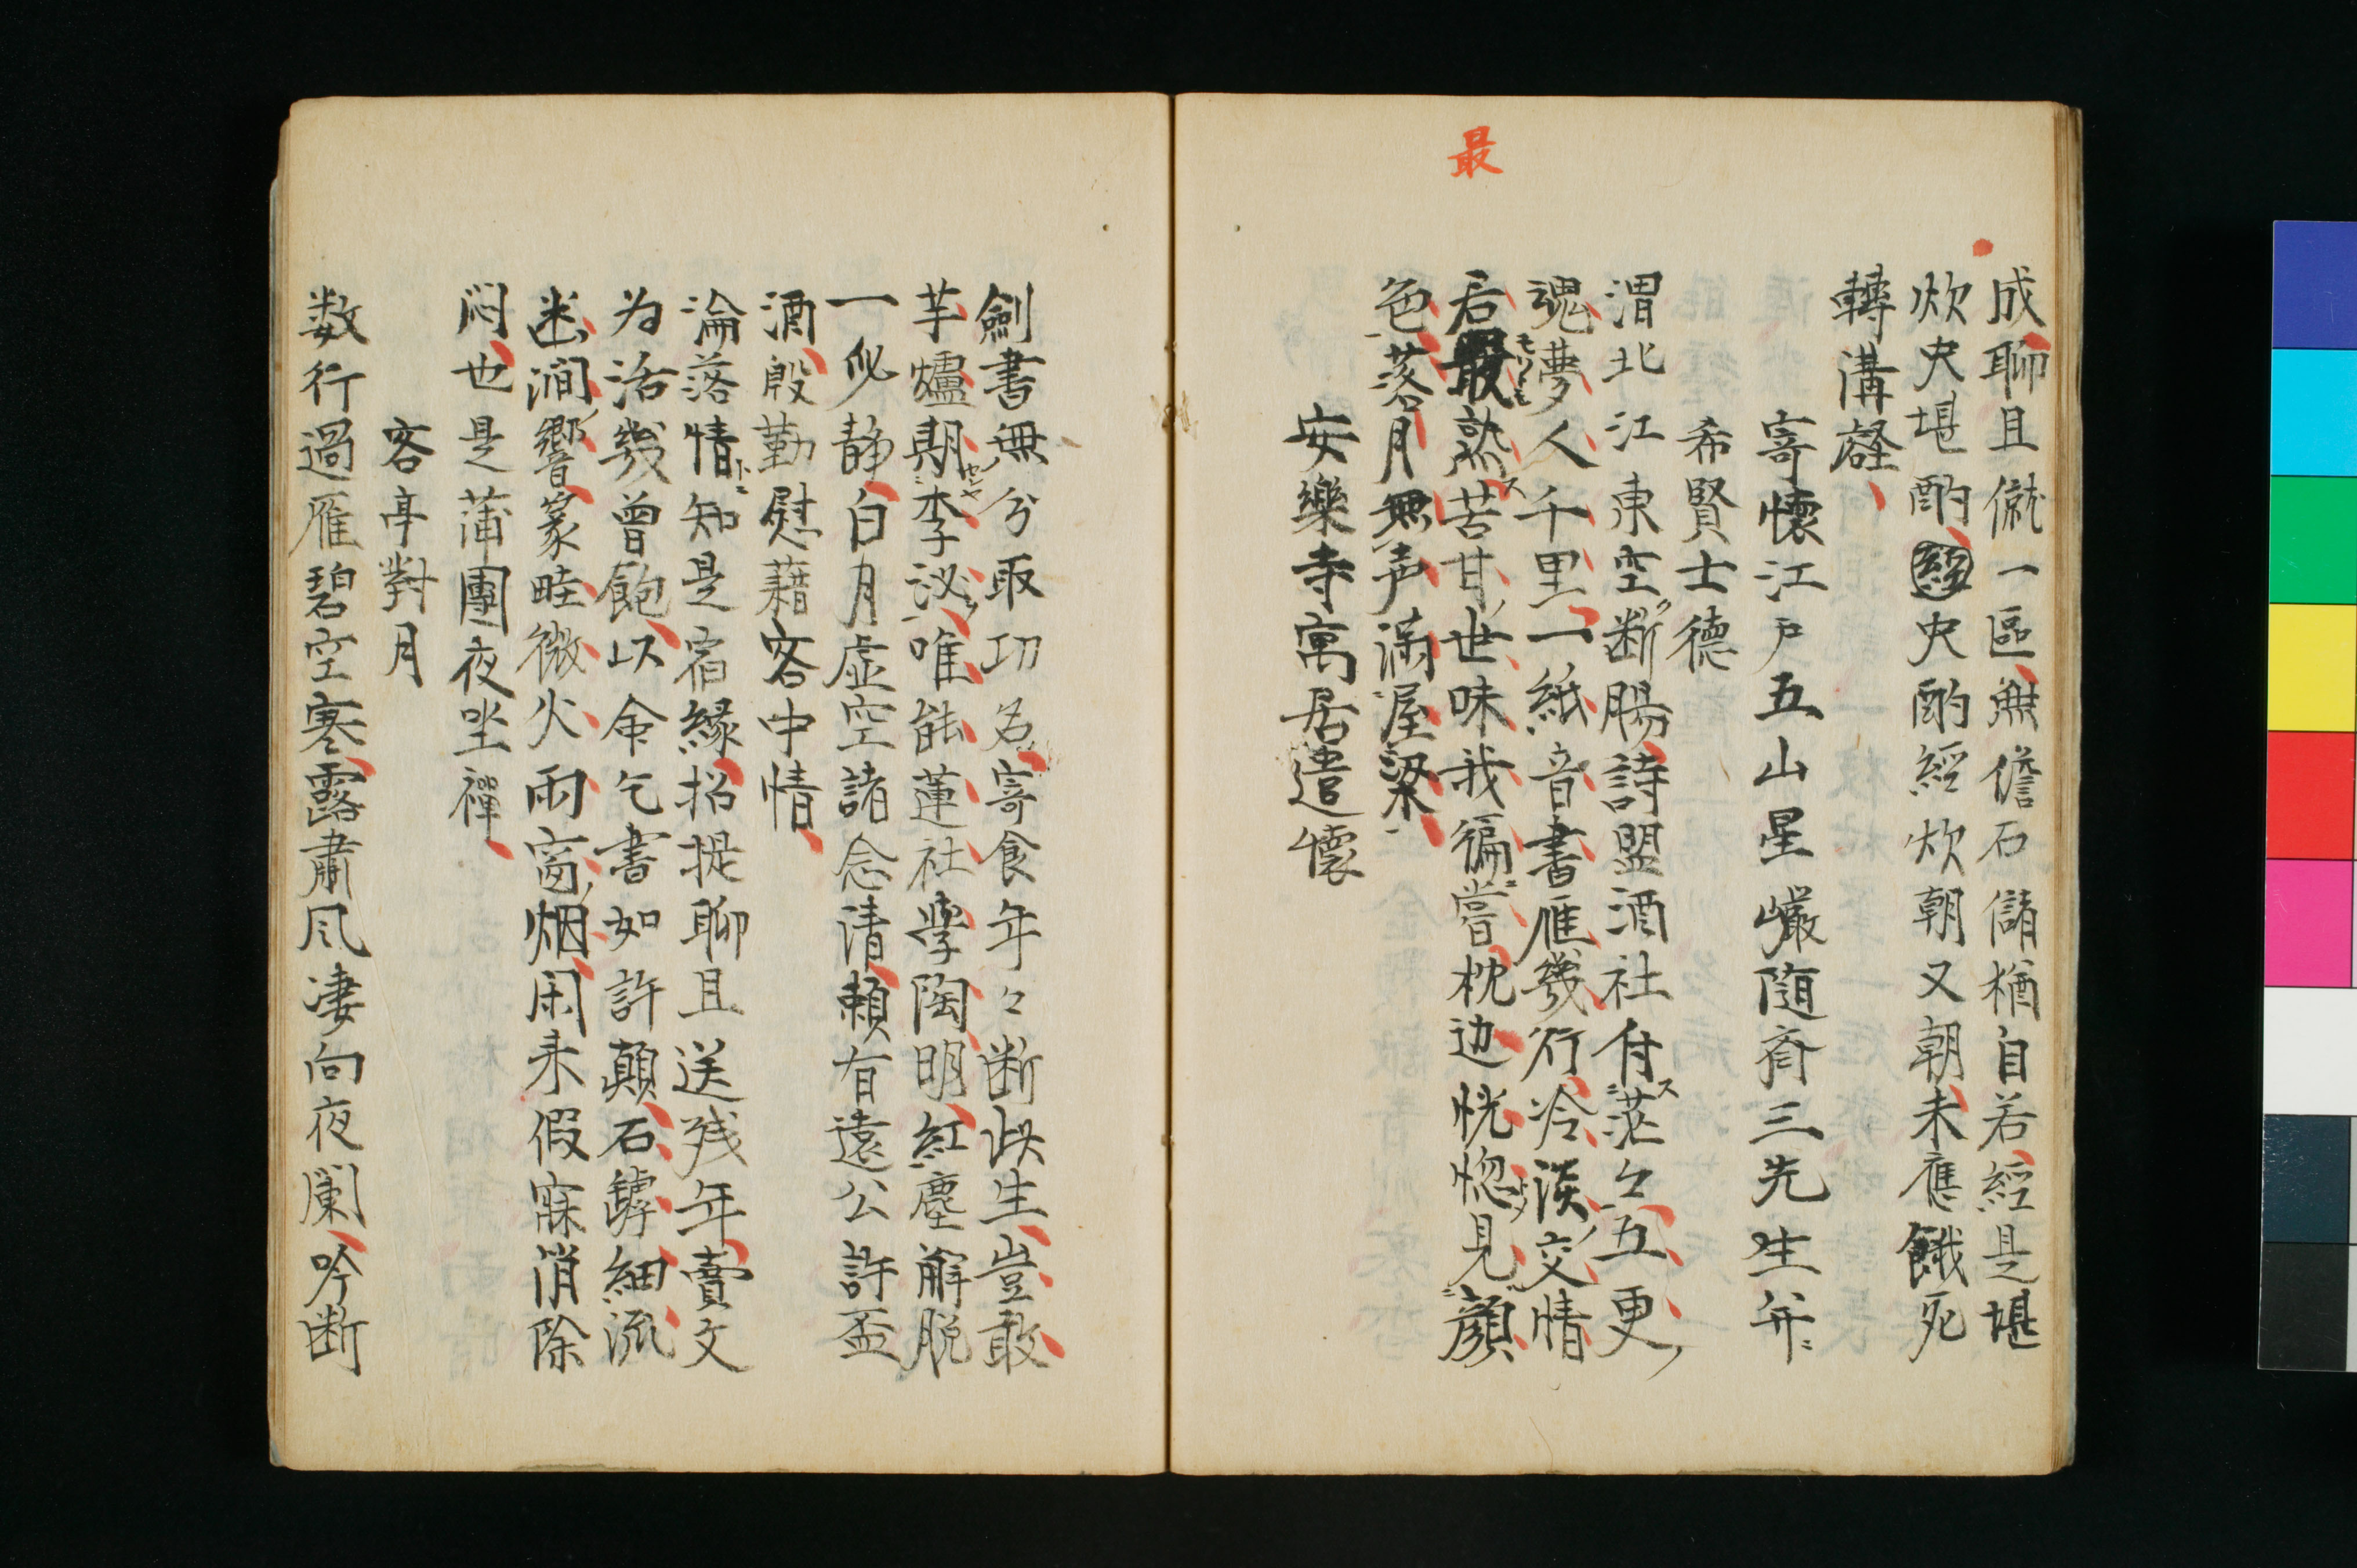 最
成聊且僦一區無儋石儲猶自若經是堪
炊史堪酌經史酌經炊朝又朝未應餓死
轉溝壑
寄懷江戸五山星巖随斉三先生并
希賢士德
渭北江東空断腸詩盟酒社付茫々五更
魂夢人千里一紙音書雁幾行冷淡交情
君最熟苦甘世味我徧嘗枕辺恍惚見顔
色落月無声満屋梁
安樂寺寓居遣懷
劍書無分取功名寄食年々断此生豈敢
芋爐期李泌唯能蓮社學陶明紅塵解脱
一身静白月虚空諸念清頼有遠公許盃
酒殷勤慰藉客中情
淪落情知是宿縁招提聊且送残年賣文
为活幾曽飽以命乞書如許顛石罅細流
迷澗響篆畦微火雨窗烟閑来假寐消除
悶也是蒲團夜坐禪
客亭對月
数行過雁碧空寒露肅风凄向夜闌吟断